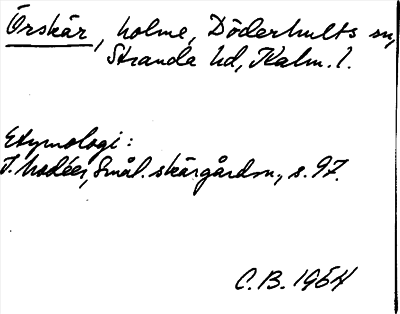 Örskär, holme, Döderhults sn,
Stranda hd, Kalm. l.
Etymologi:
J. Modéer, Smål. skärgårdsn., s. 97.
C.B. 1964